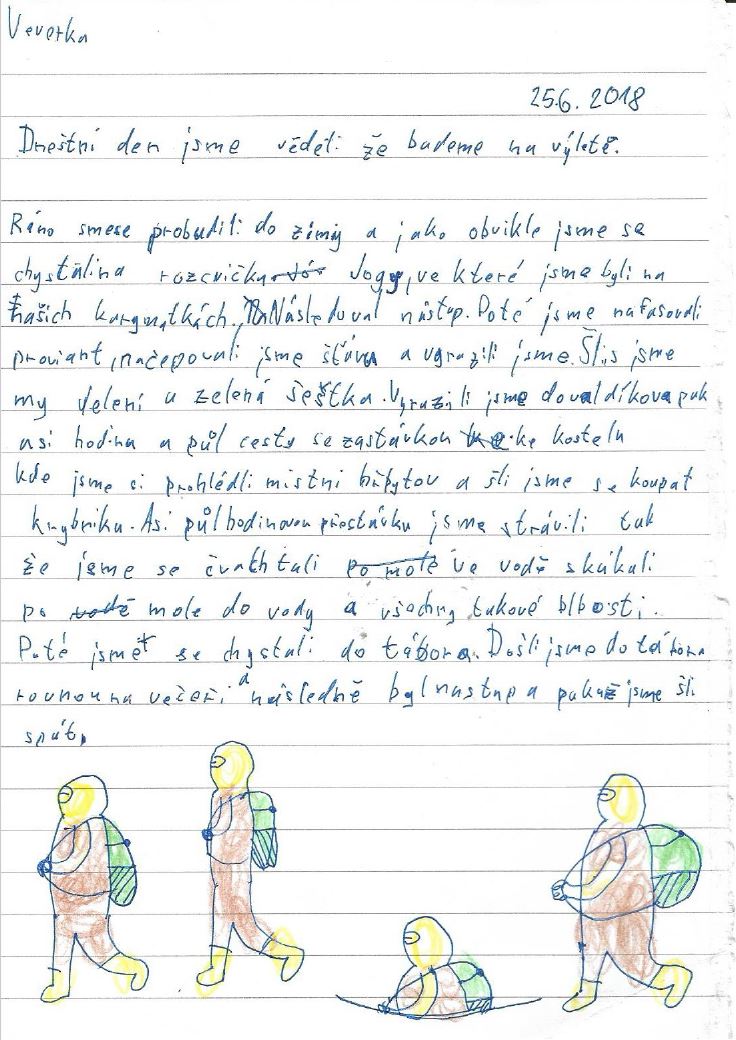 Veverka
25.6. 2018
Dneštní den jsme věděli že budeme na výletě.
Ráno smese probudili do zimy a jako obvikle jsme se
chystali na rozcvičku Jogy, ve které jsme byli na
našich karymatkách. Následoval nástup. Poté jsme nafasovali
proviant, načepovali jsme šťávu a vyrazili jsme. Šli jsme
my velení a zelená šestka. Vyrazili jsme do valdíkova pak
asi hodina a půl cesty se zastávkou ke kostelu
kde jsme si prohlédli místní hřbytov a šli jsme se koupat
k rybníku. Asi půlhodinovou přestávku jsme strávili tak
že jsme se čvachtali po mole ve vodě skákali
po vodě mole do vody a všechny takové blbosti.
Poté jsme se chystali do tábora. Došli jsme do tábora
rovnou na večeři a následně byl nastup a pak už jsme šli
spát.